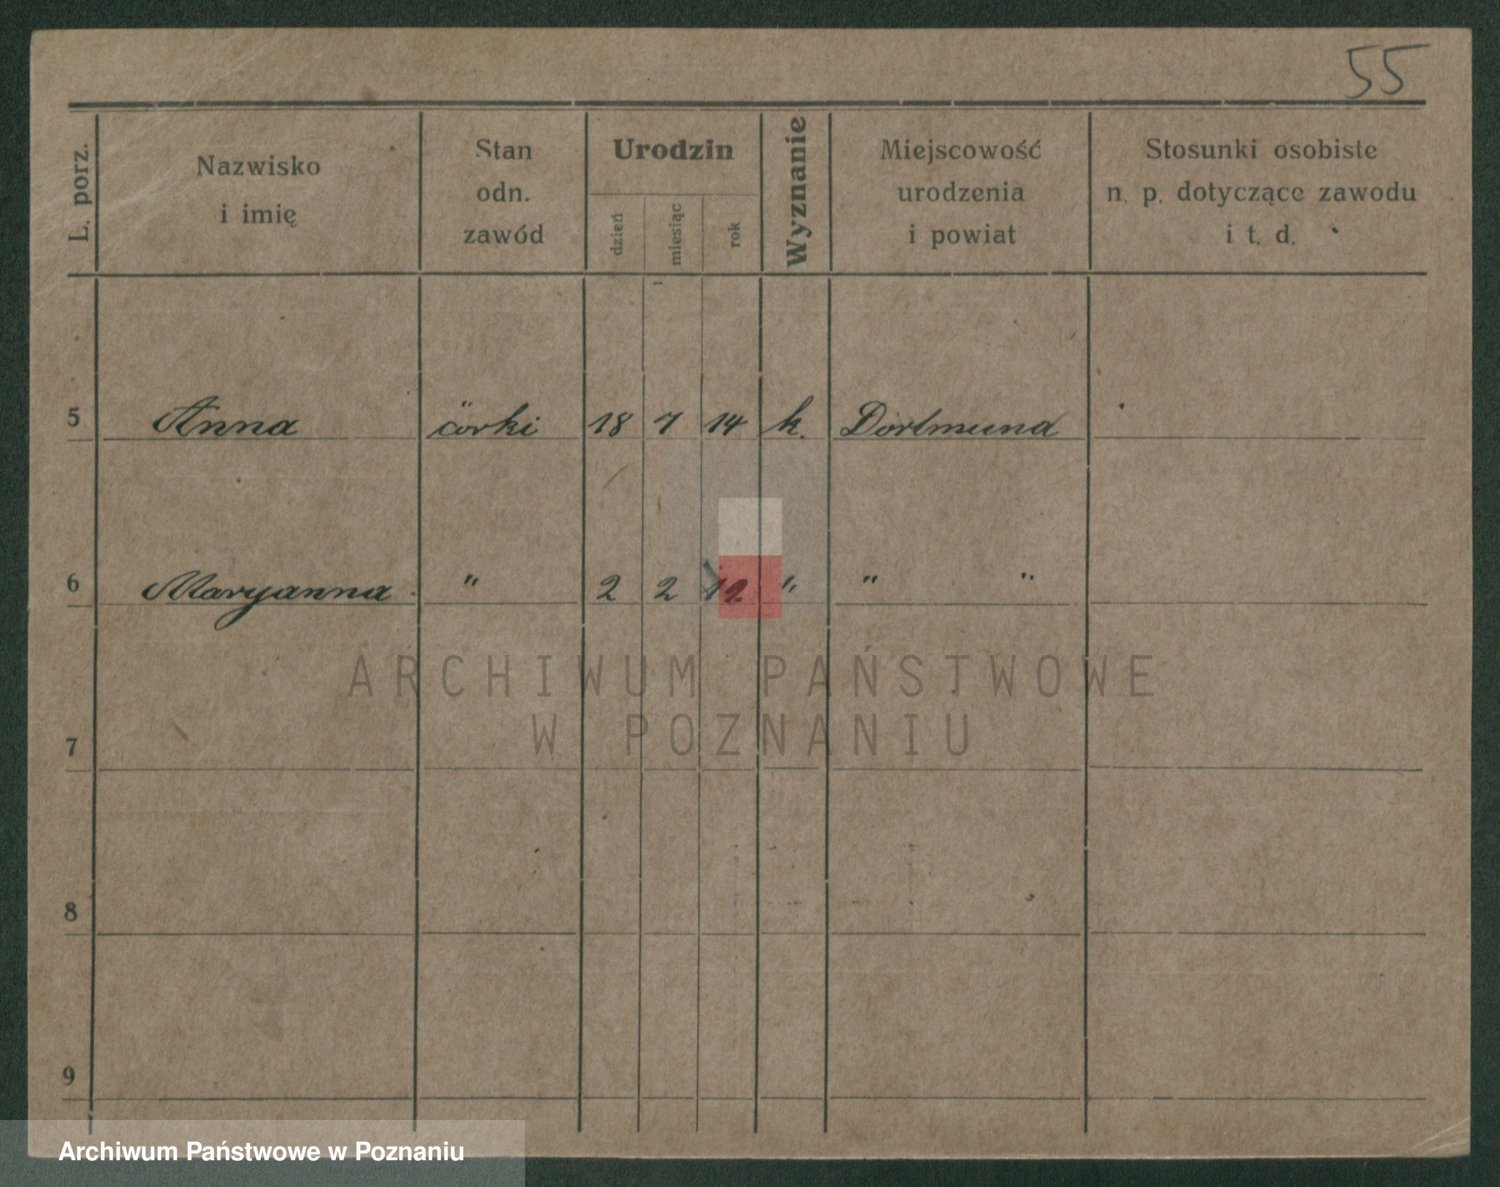 55
L. porz.
Nazwisko
i imię
Stan
odn.
zawód
Urodzin
dzień
miesiąc
rok
Wyznanie
Miejscowość
urodzenia
i powiat
Stosunki osobiste
n. p. dotyczące zawodu
i t. d.
5 Anna córki 18 7 14 k. Dortmund
6 Maryanna " 2 2 12 " " "
ARCHIWUM PAŃSTWOWE
W POZNANIU
7
8
9
Archiwum Państwowe w Poznaniu